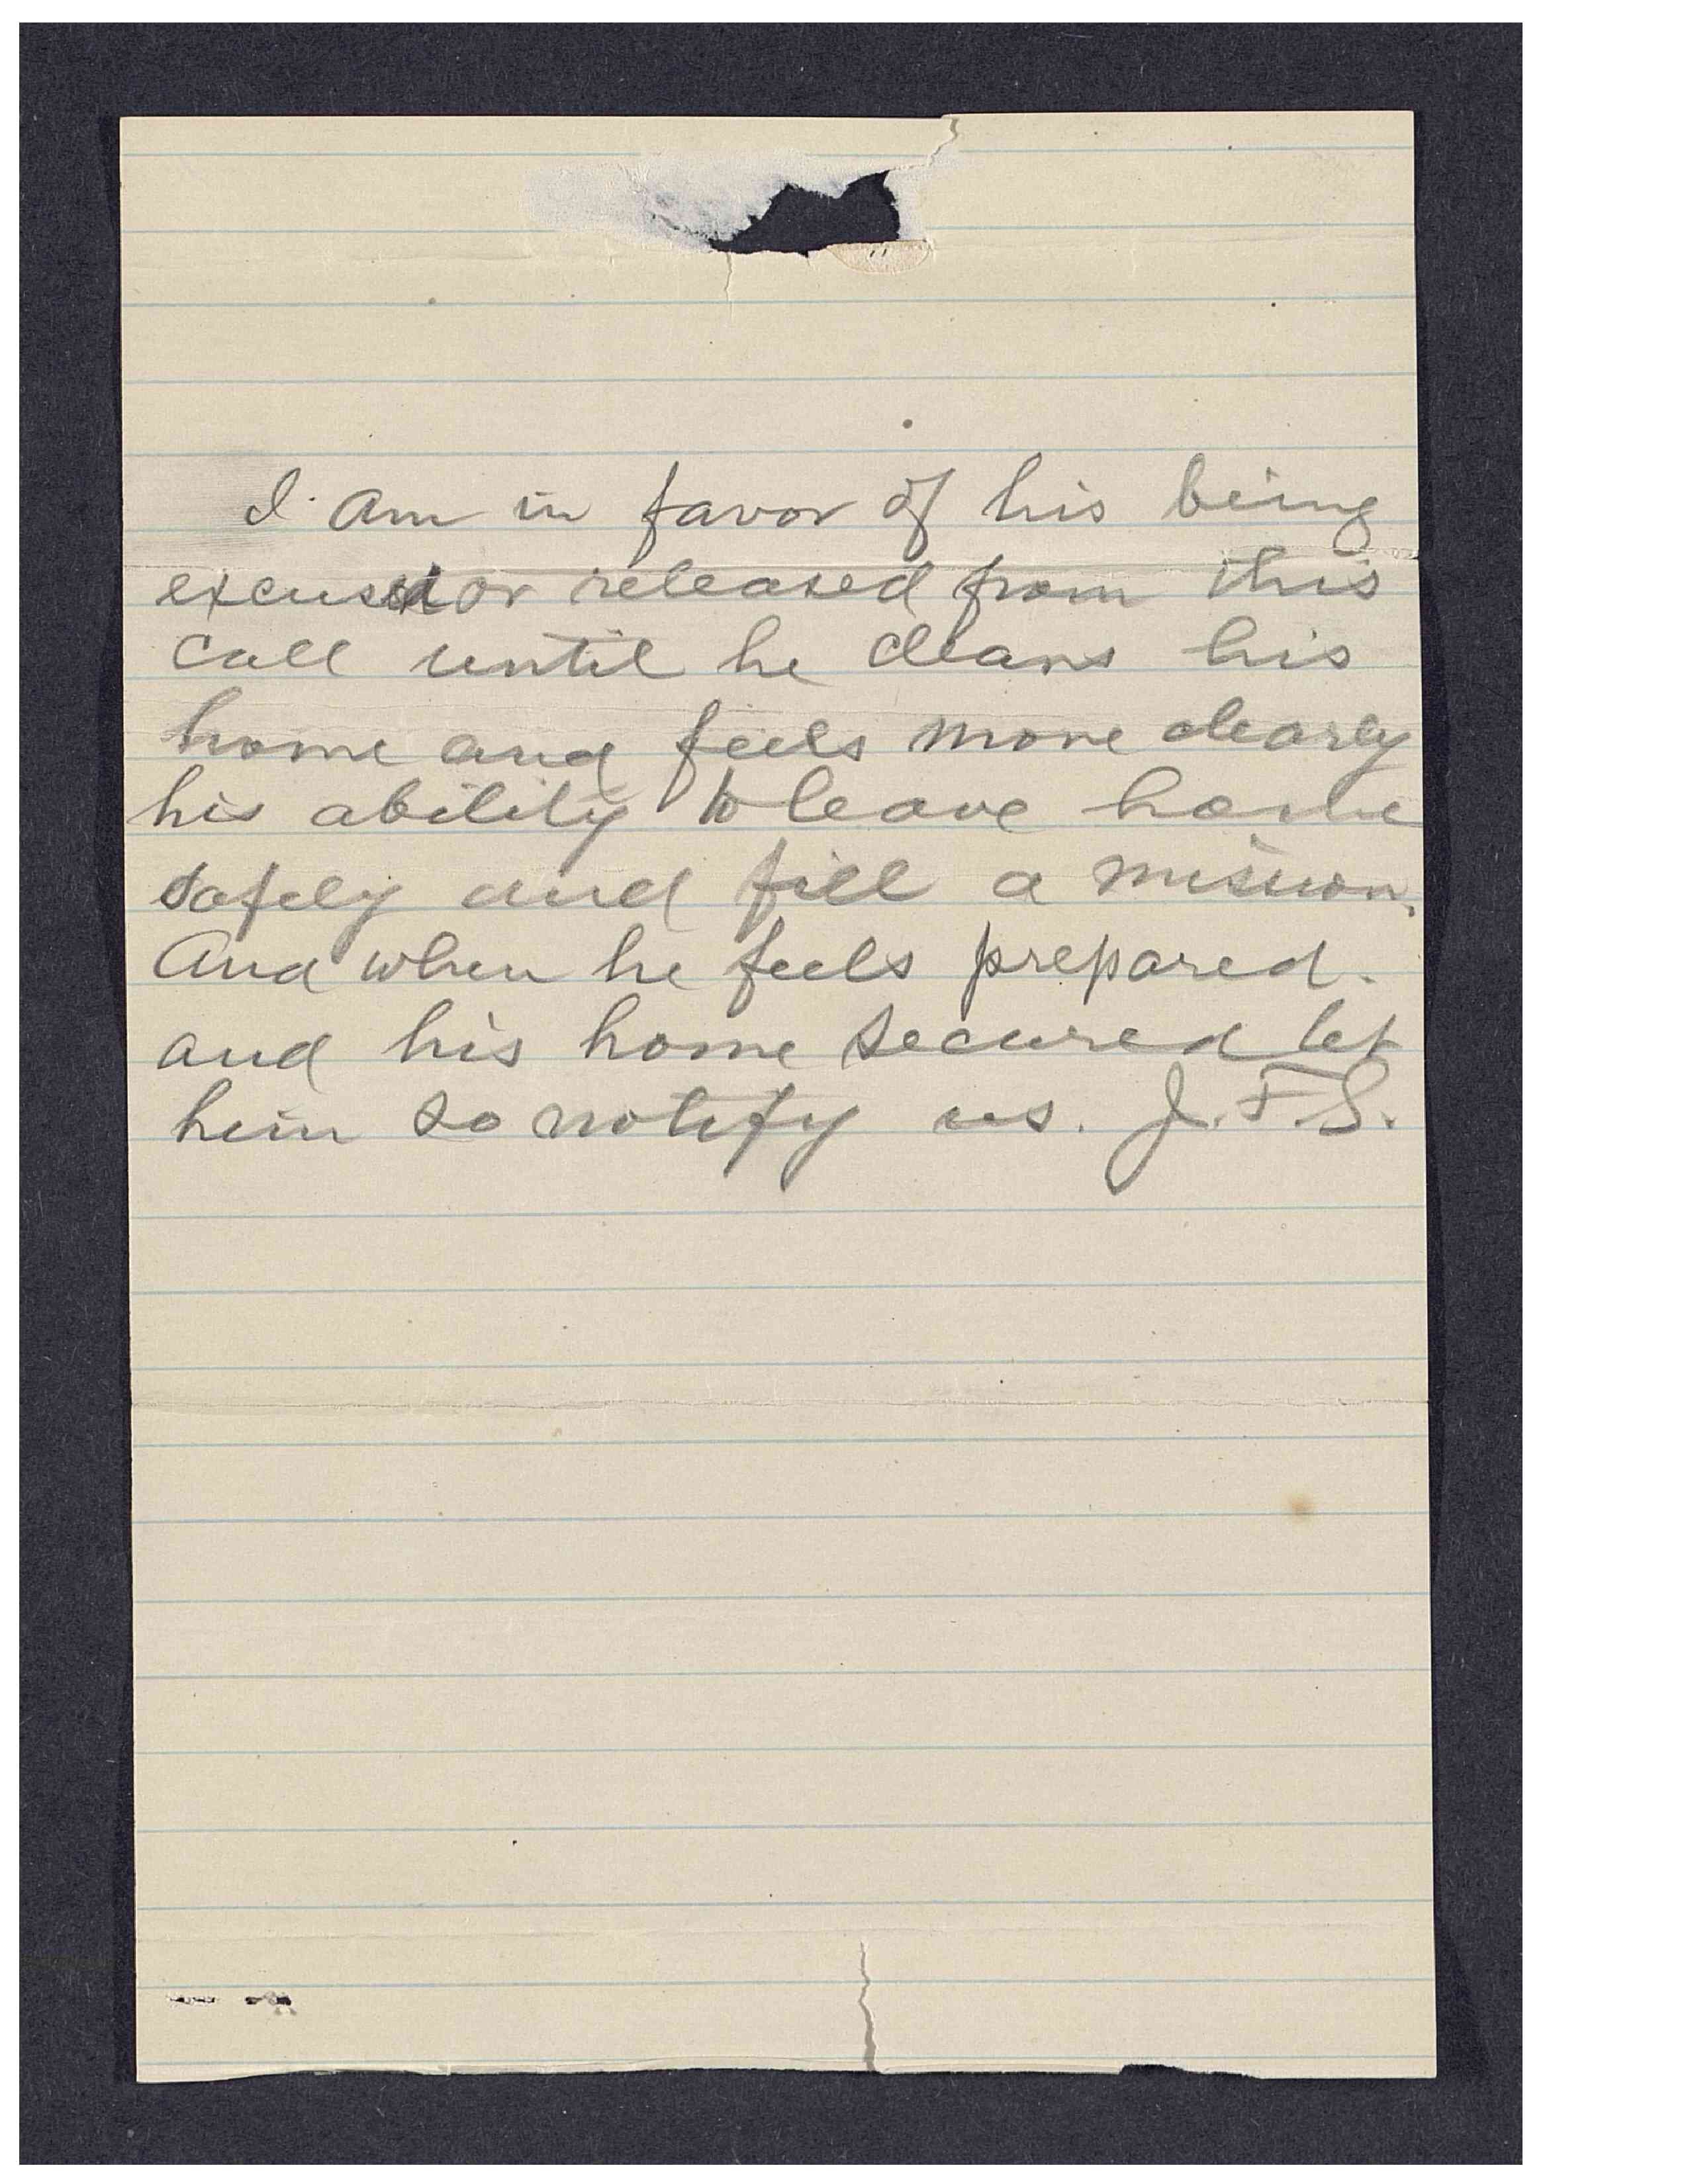 I am in favor of his being
excused or released from this
call until he clears his
home and feels more clearly
his ability to leave home
safely and fill a mission.
And when he feels prepared.
and his home secured let
him so notify us. J.F.S.